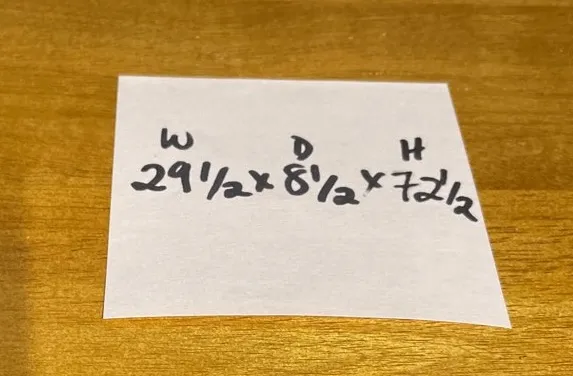 W D H
29 1/2 x 8 1/2 x 72 1/2